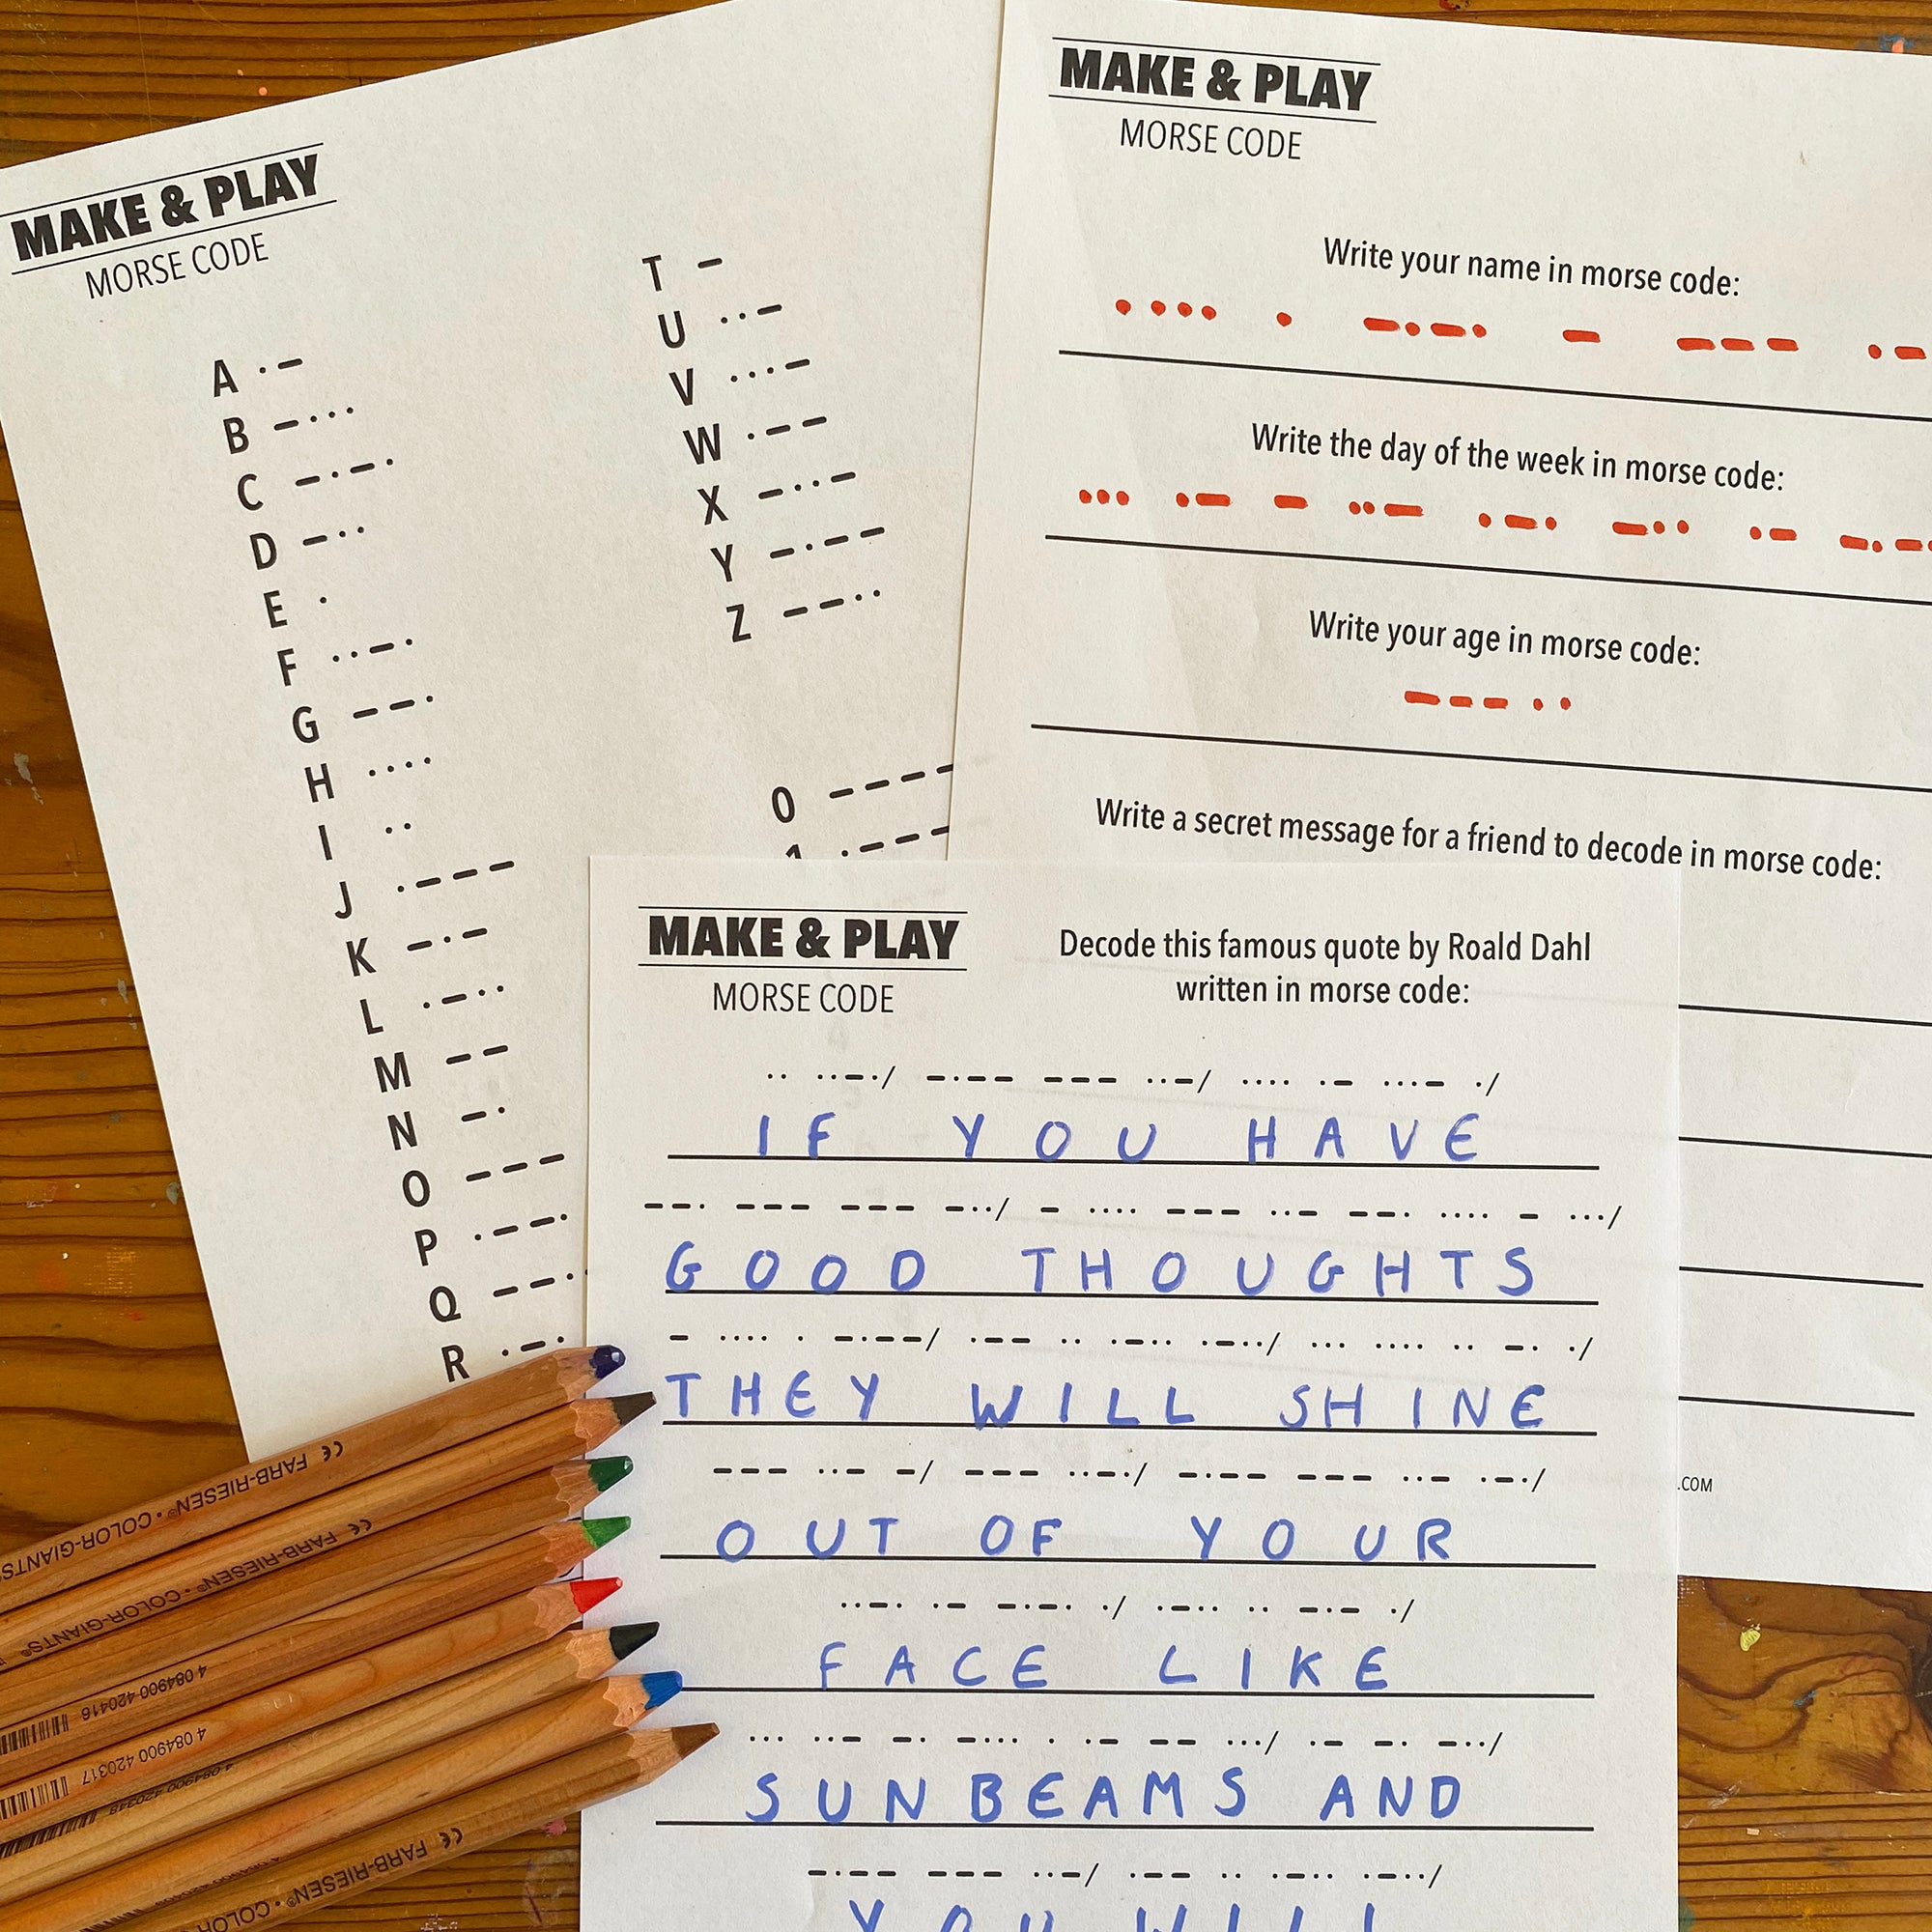 MAKE & PLAY
MORSE CODE
A ·–
B –···
C –·–·
D –··
E ·
F ··–·
G ––·
H ····
I ··
J ·–––
K –·–
L ·–··
M ––
N –·
O –––
P ·––·
Q ––·
R ·–·
T –
U ··–
V ···–
W ·––
X –··–
Y –·––
Z ––··
0 ––––
MAKE & PLAY
MORSE CODE
Write your name in morse code:
···· · –·–· – ––– ·–
Write the day of the week in morse code:
··· ·– – ··– ·–· –·· ·– –·–
Write your age in morse code:
–––··
Write a secret message for a friend to decode in morse code:
.COM
MAKE & PLAY
MORSE CODE
Decode this famous quote by Roald Dahl
written in morse code:
·· ··–·/ –·–– ––– ··–/ ···· ·– ···– ·/
IF YOU HAVE
––· ––– ––– –··/ – ···· ––– ··– ––· ···· – ···/
GOOD THOUGHTS
– ···· · –·––/ ·–– ·· ·–·· ·–··/ ··· ···· ·· –· ·/
THEY WILL SHINE
––– ··– –/ ––– ··–·/ –·–– ––– ··– ·–·/
OUT OF YOUR
··–· ·– –·–· ·/ ·–·· ·· –·– ·/
FACE LIKE
··· ··– –· –··· · ·– –– ···/ ·– –· –··/
SUNBEAMS AND
–·–– ––– ··–/ ·–– ·· ·–·· ·–··/
YOU WILL
FARB-RIESEN • COLOR-GIANTS
FARB-RIESEN® • COLOR-GIANTS®
4 084900 420416
4 084900 420317
4 084900 420348
FARB-RIESEN® • COLOR